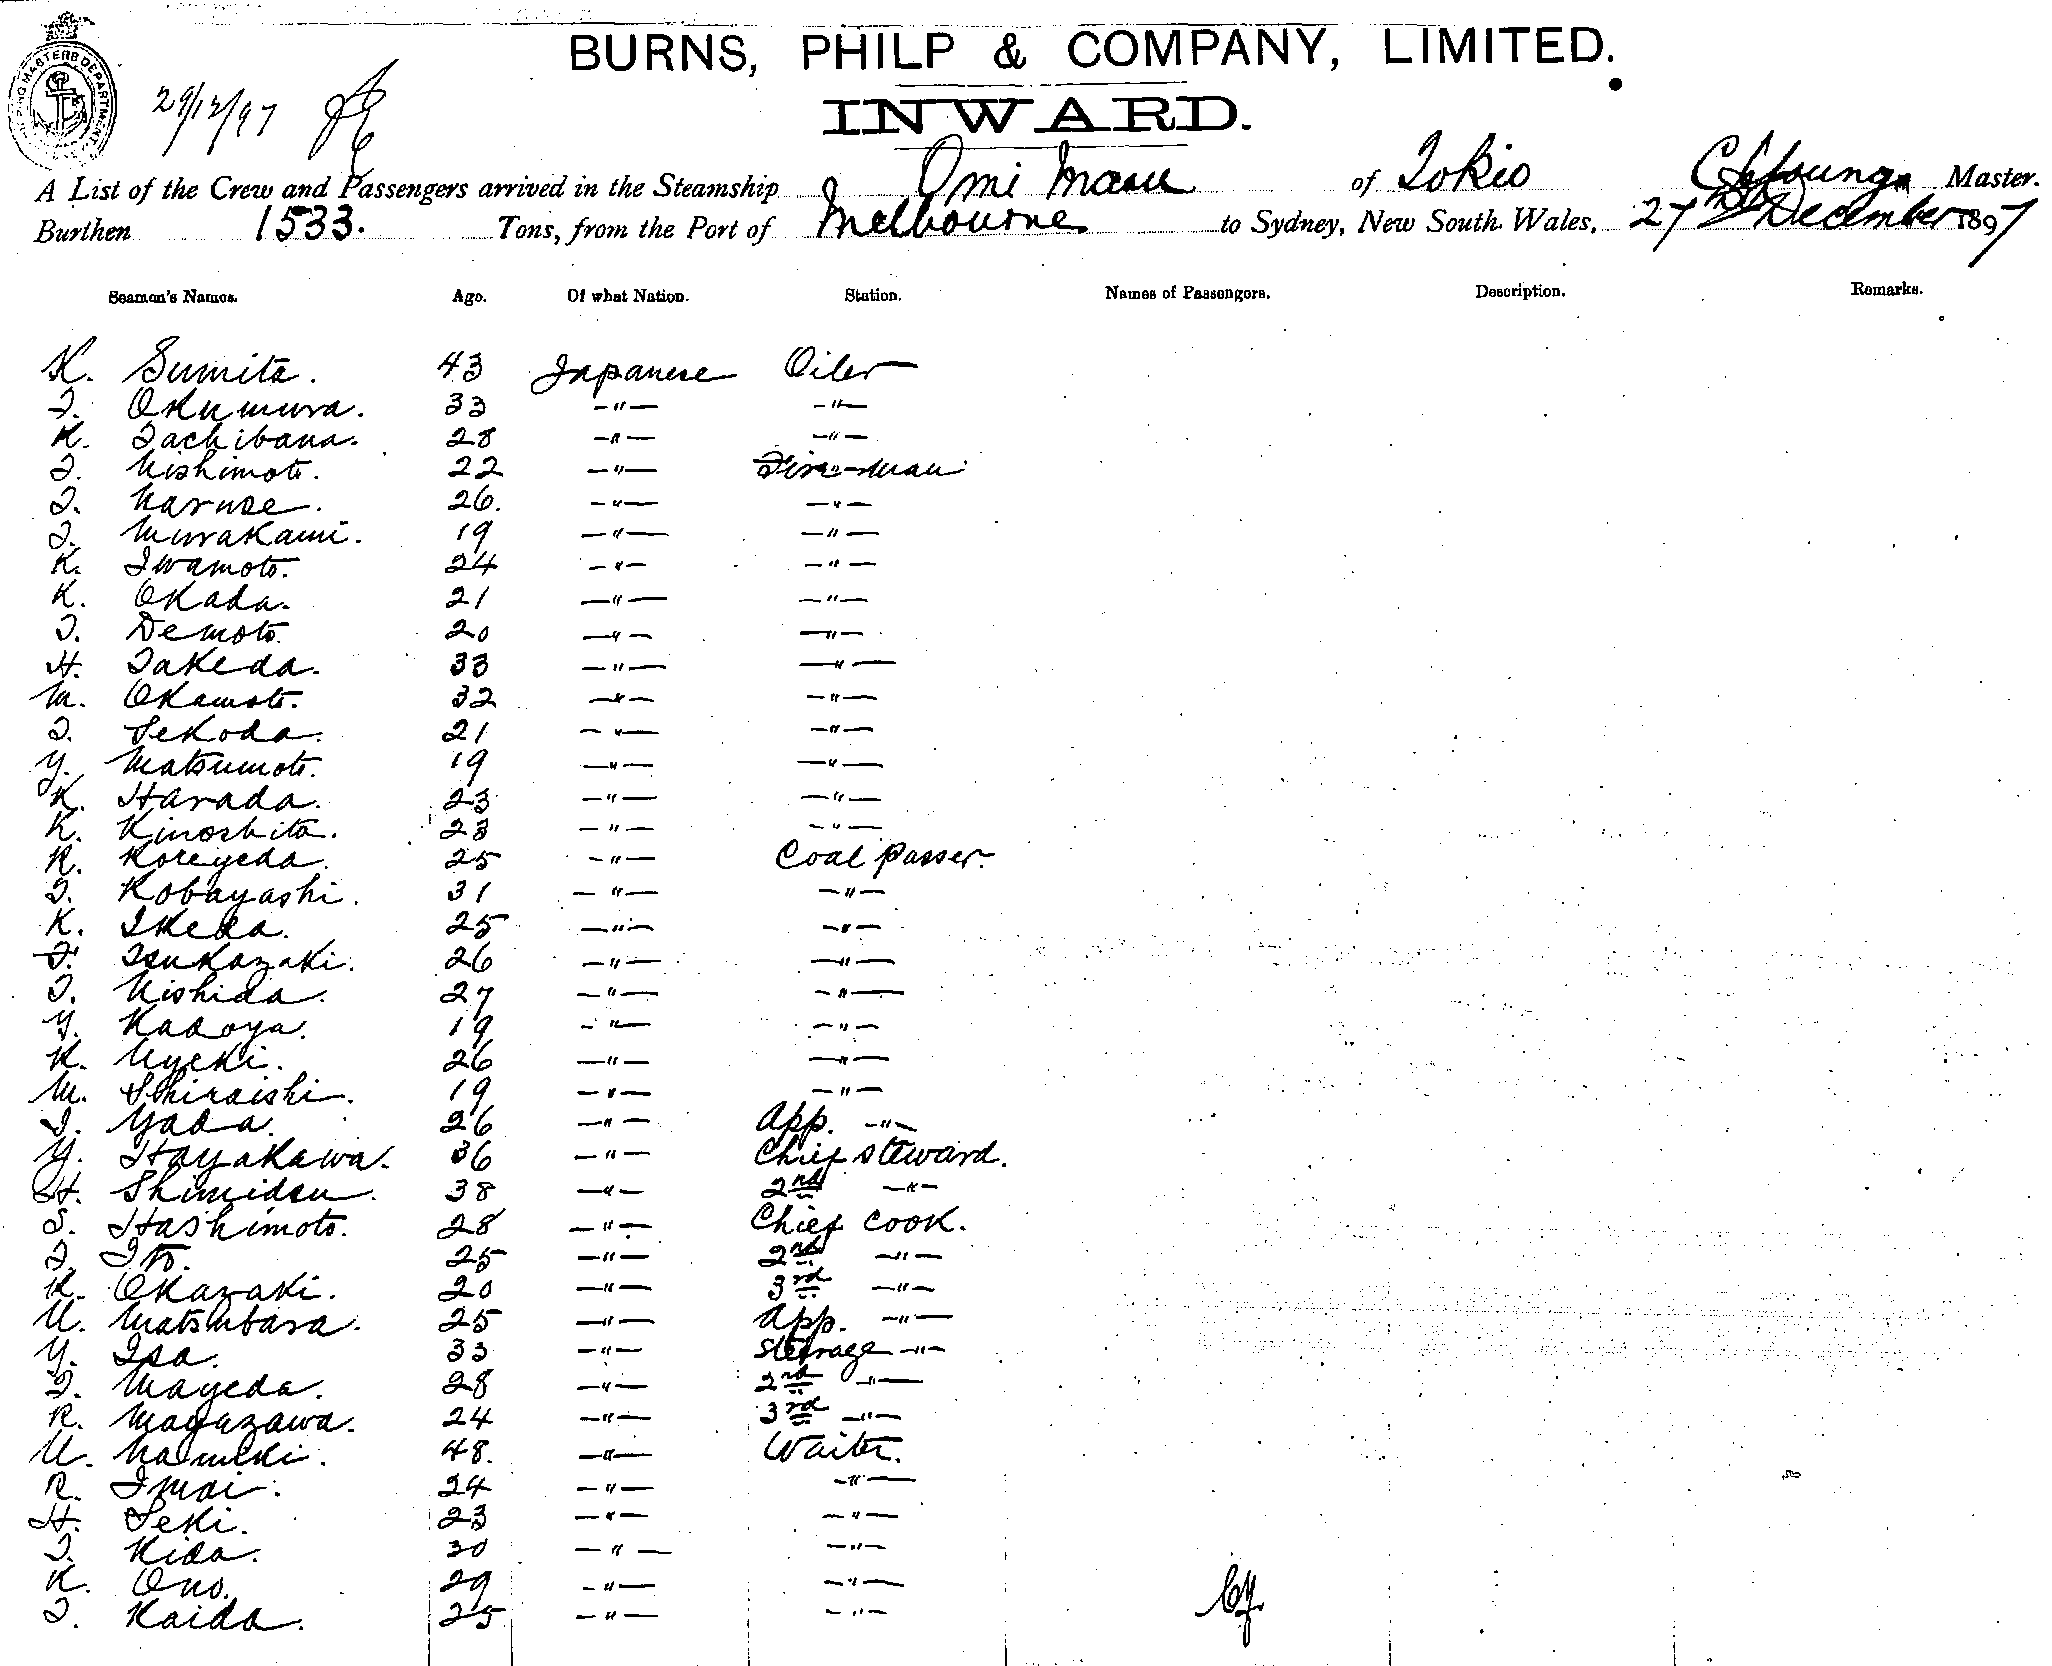 BURNS, PHILP & COMPANY, LIMITED.
INWARD.
29/12/97
A List of the Crew and Passengers arrived in the Steamship Omi Maru of Tokio Master.
Burthen 1533. Tons, from the Port of Melbourne to Sydney, New South Wales, 27 December 1897
Seamen's Names. Age. Of what Nation. Station. Names of Passengers. Description. Remarks.
K. Sumita. 43 Japanese Oiler
T. Okumura. 33 -"- -"-
K. Tachibana. 28 -"- -"-
T. Nishimoto. 22 -"- Fire-man
T. Naruse. 26. -"- -"-
T. Murakami. 19 -"- -"-
K. Iwamoto. 24 -"- -"-
K. Okada. 21 -"- -"-
T. Demoto. 20 -"- -"-
H. Takeda. 33 -"- -"-
M. Okamoto. 32 -"- -"-
T. Sekoda. 21 -"- -"-
Y. Matsumoto. 19 -"- -"-
K. Harada. 23 -"- -"-
K. Kinoshita. 23 -"- -"-
K. Koreyeda. 25 -"- Coal passer.
T. Kobayashi. 31 -"- -"-
K. Ikeda. 25 -"- -"-
F. Tsukazaki. 26 -"- -"-
T. Nishida. 27 -"- -"-
Y. Kadoya. 19 -"- -"-
K. Uyeki. 26 -"- -"-
M. Shiraishi. 19 -"- -"-
I. Yada. 26 -"- App. -"-
Y. Hayakawa. 36 -"- Chief steward.
H. Shimidzu. 38 -"- 2nd -"-
S. Hashimoto. 28 -"- Chief cook.
T. Ito. 25 -"- 2nd -"-
K. Okazaki. 20 -"- 3rd -"-
U. Matsubara. 25 -"- App. -"-
Y. Isa. 33 -"- Steerage -"-
T. Mayeda. 28 -"- 2nd -"-
R. Mayuzawa. 24 -"- 3rd -"-
U. Namiki. 48. -"- Waiter.
R. Imai. 24 -"- -"-
H. Seki. 23 -"- -"-
T. Kida. 30 -"- -"-
K. Ono. 29 -"- -"-
T. Kaida. 25 -"- -"-